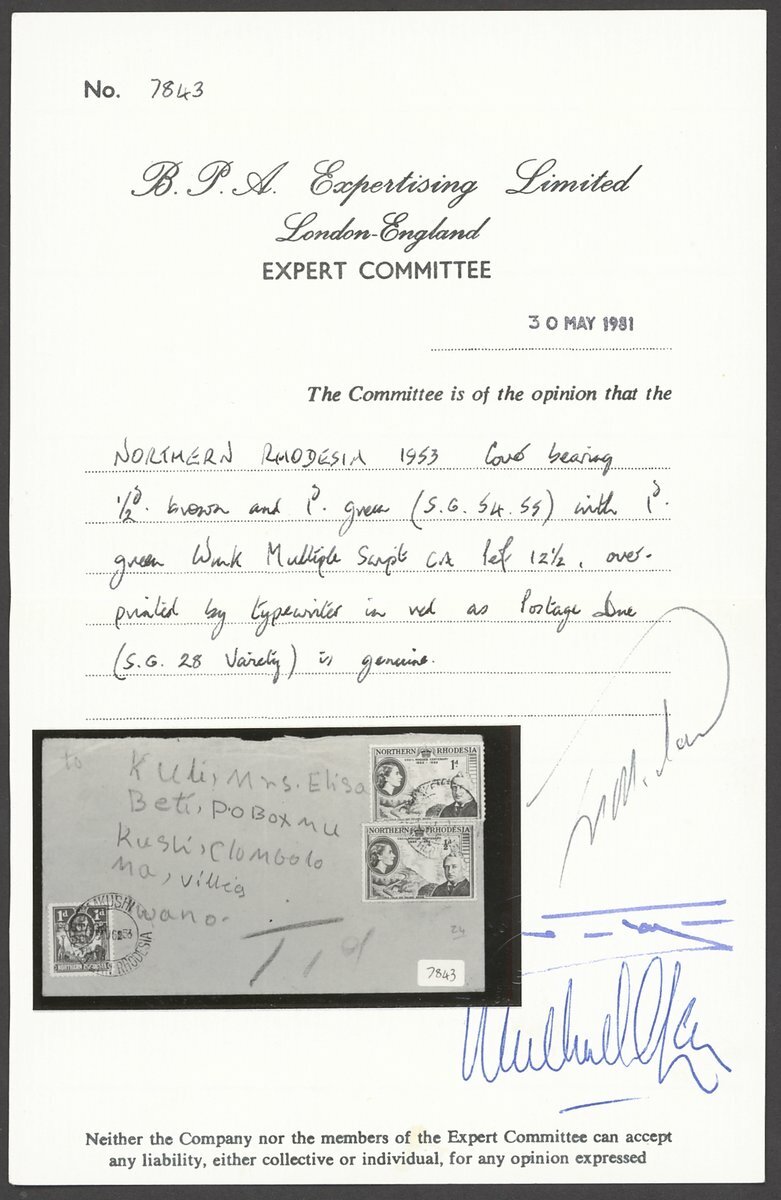 No. 7843
B. P. A. Expertising Limited
London-England
EXPERT COMMITTEE
30 MAY 1981
The Committee is of the opinion that the
NORTHERN RHODESIA 1953 Cover bearing
½d. brown and 1d. green (S.G. 54.55) with 1d.
green Wmk Multiple Script CA Perf 12½, over-
printed by typewriter in red as Postage Due
(S.G. 28 Variety) is genuine.
to Kuli, Mrs. Elisa
Beti, POBoxmu
Kushi, Clombolo
ma, Villig
wano.
NORTHERN RHODESIA
1d
NORTHERN RHODESIA
½d
1d 1d
NORTHERN
MKUSHI
RHODESIA
T 1d
24
7843
Neither the Company nor the members of the Expert Committee can accept
any liability, either collective or individual, for any opinion expressed